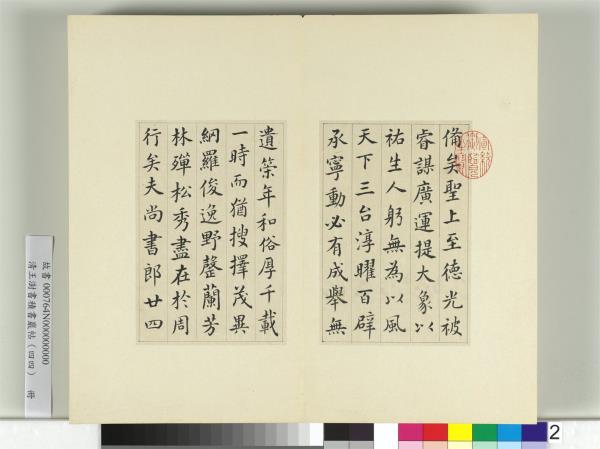 備矣聖上至徳光被
睿謀廣運提大象以
祐生人躬無為以風
天下三台淳曜百辟
承寧動必有成舉無
遺策年和俗厚千載
一時而猶搜擇茂異
網羅俊逸野罄蘭芳
林殫松秀盡在於周
行矣夫尚書郎廿四
故書 000764N000000000
清王澍書積書巖帖（四四） 冊
2